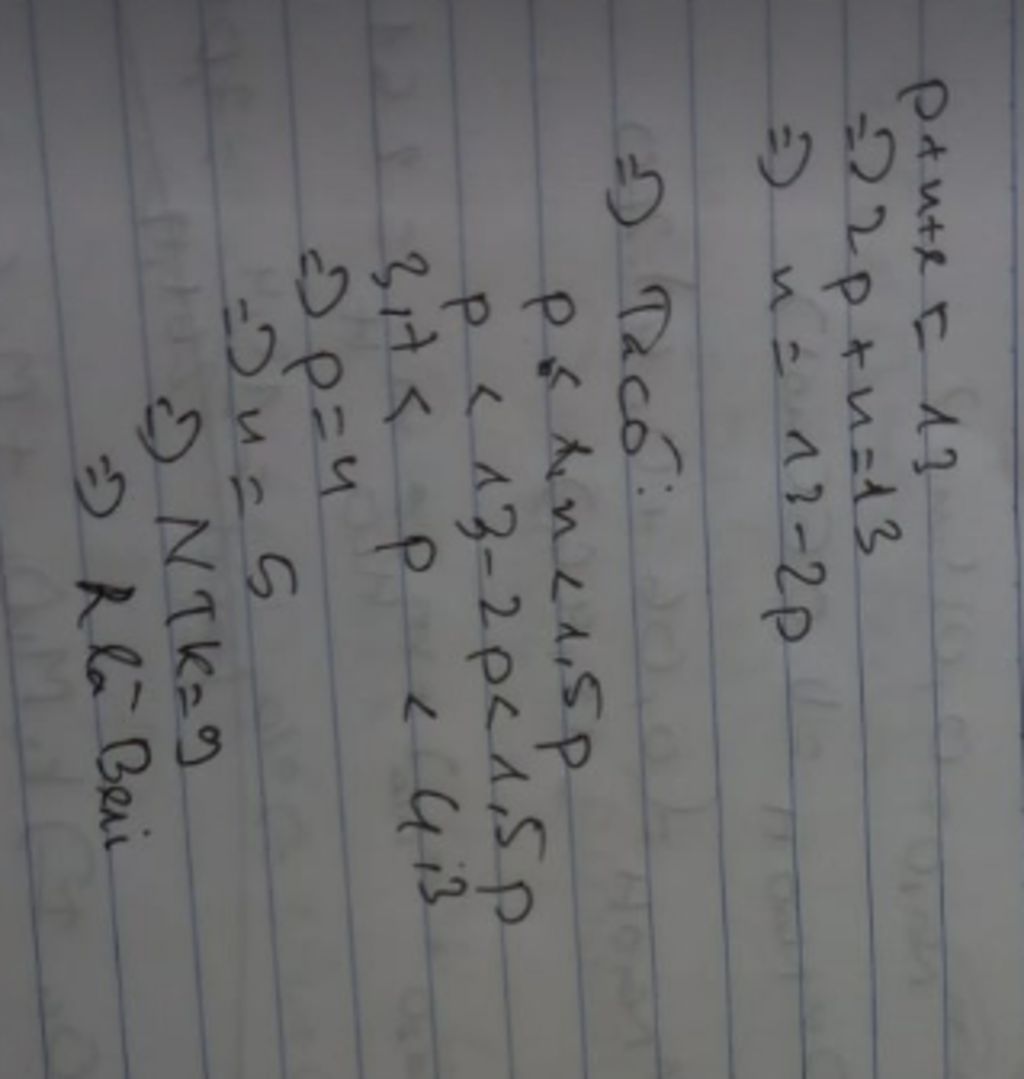 p+n+e = 13
=> 2p+n=13
=> n = 13-2p
=> Ta có:
p < 1, n < 1,5p
p < 13-2p < 1,5p
3,7 < p < 4,3
=> p=4
=> n = 5
=> NTK=9
=> R là Beri